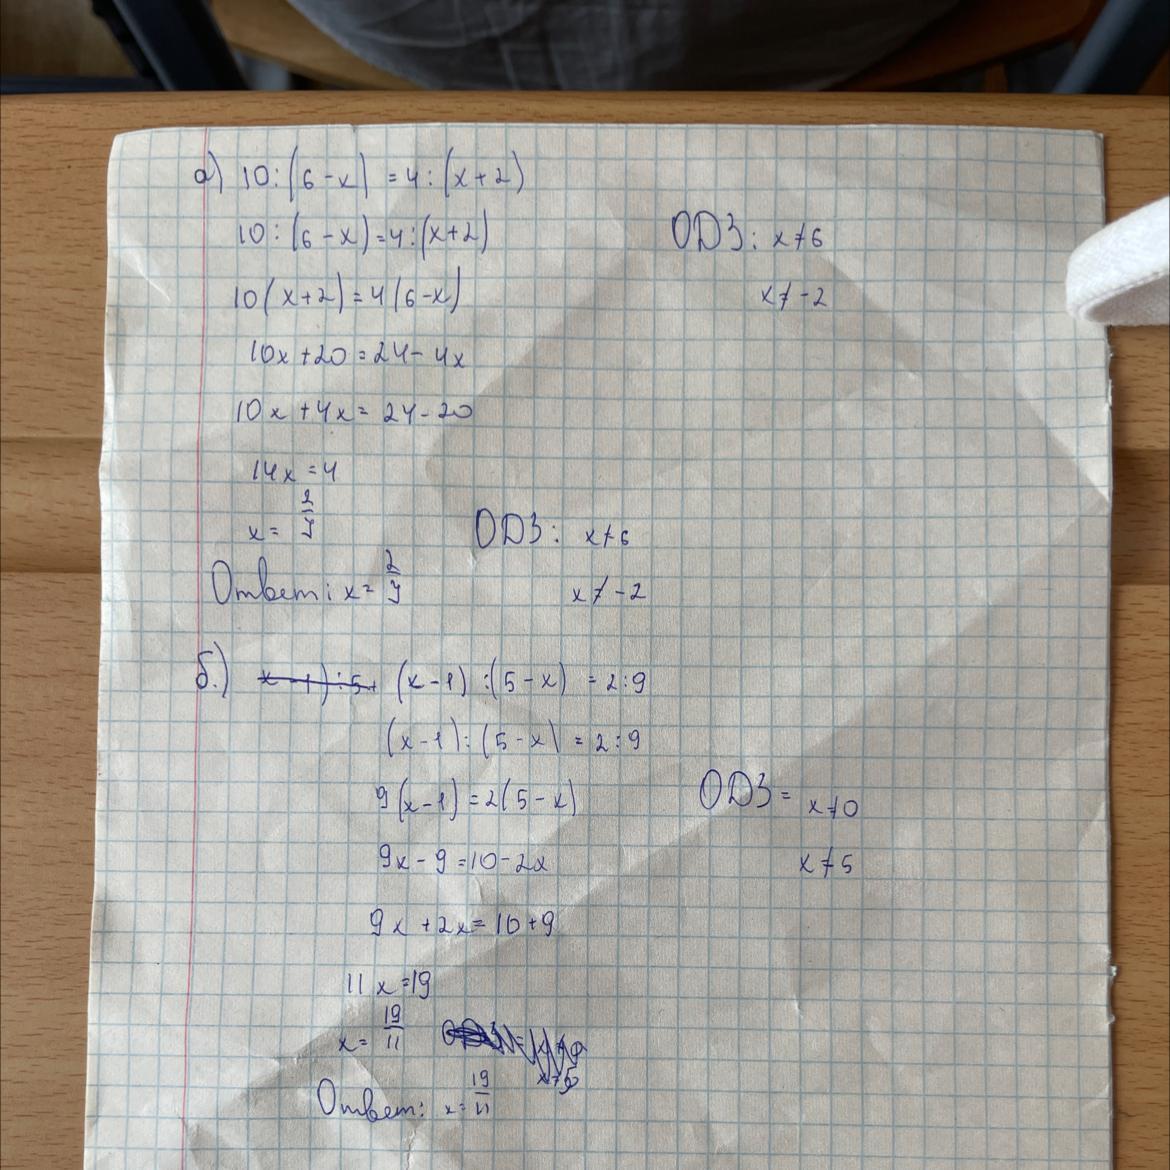 а) 10:(6-x) = 4:(x+2)
10:(6-x)=4:(x+2)
ОДЗ: x≠6
10(x+2)=4(6-x)
x≠-2
10x+20=24-4x
10x+4x=24-20
14x=4
x= 2/7
ОДЗ: x≠6
Ответ: x= 2/7
x≠-2
б.) (x-1):(5-x) = 2:9
(x-1):(5-x) = 2:9
9(x-1)=2(5-x)
ОДЗ= x≠0
9x-9=10-2x
x≠5
9x+2x=10+9
11x=19
x= 19/11
Ответ: x= 19/11